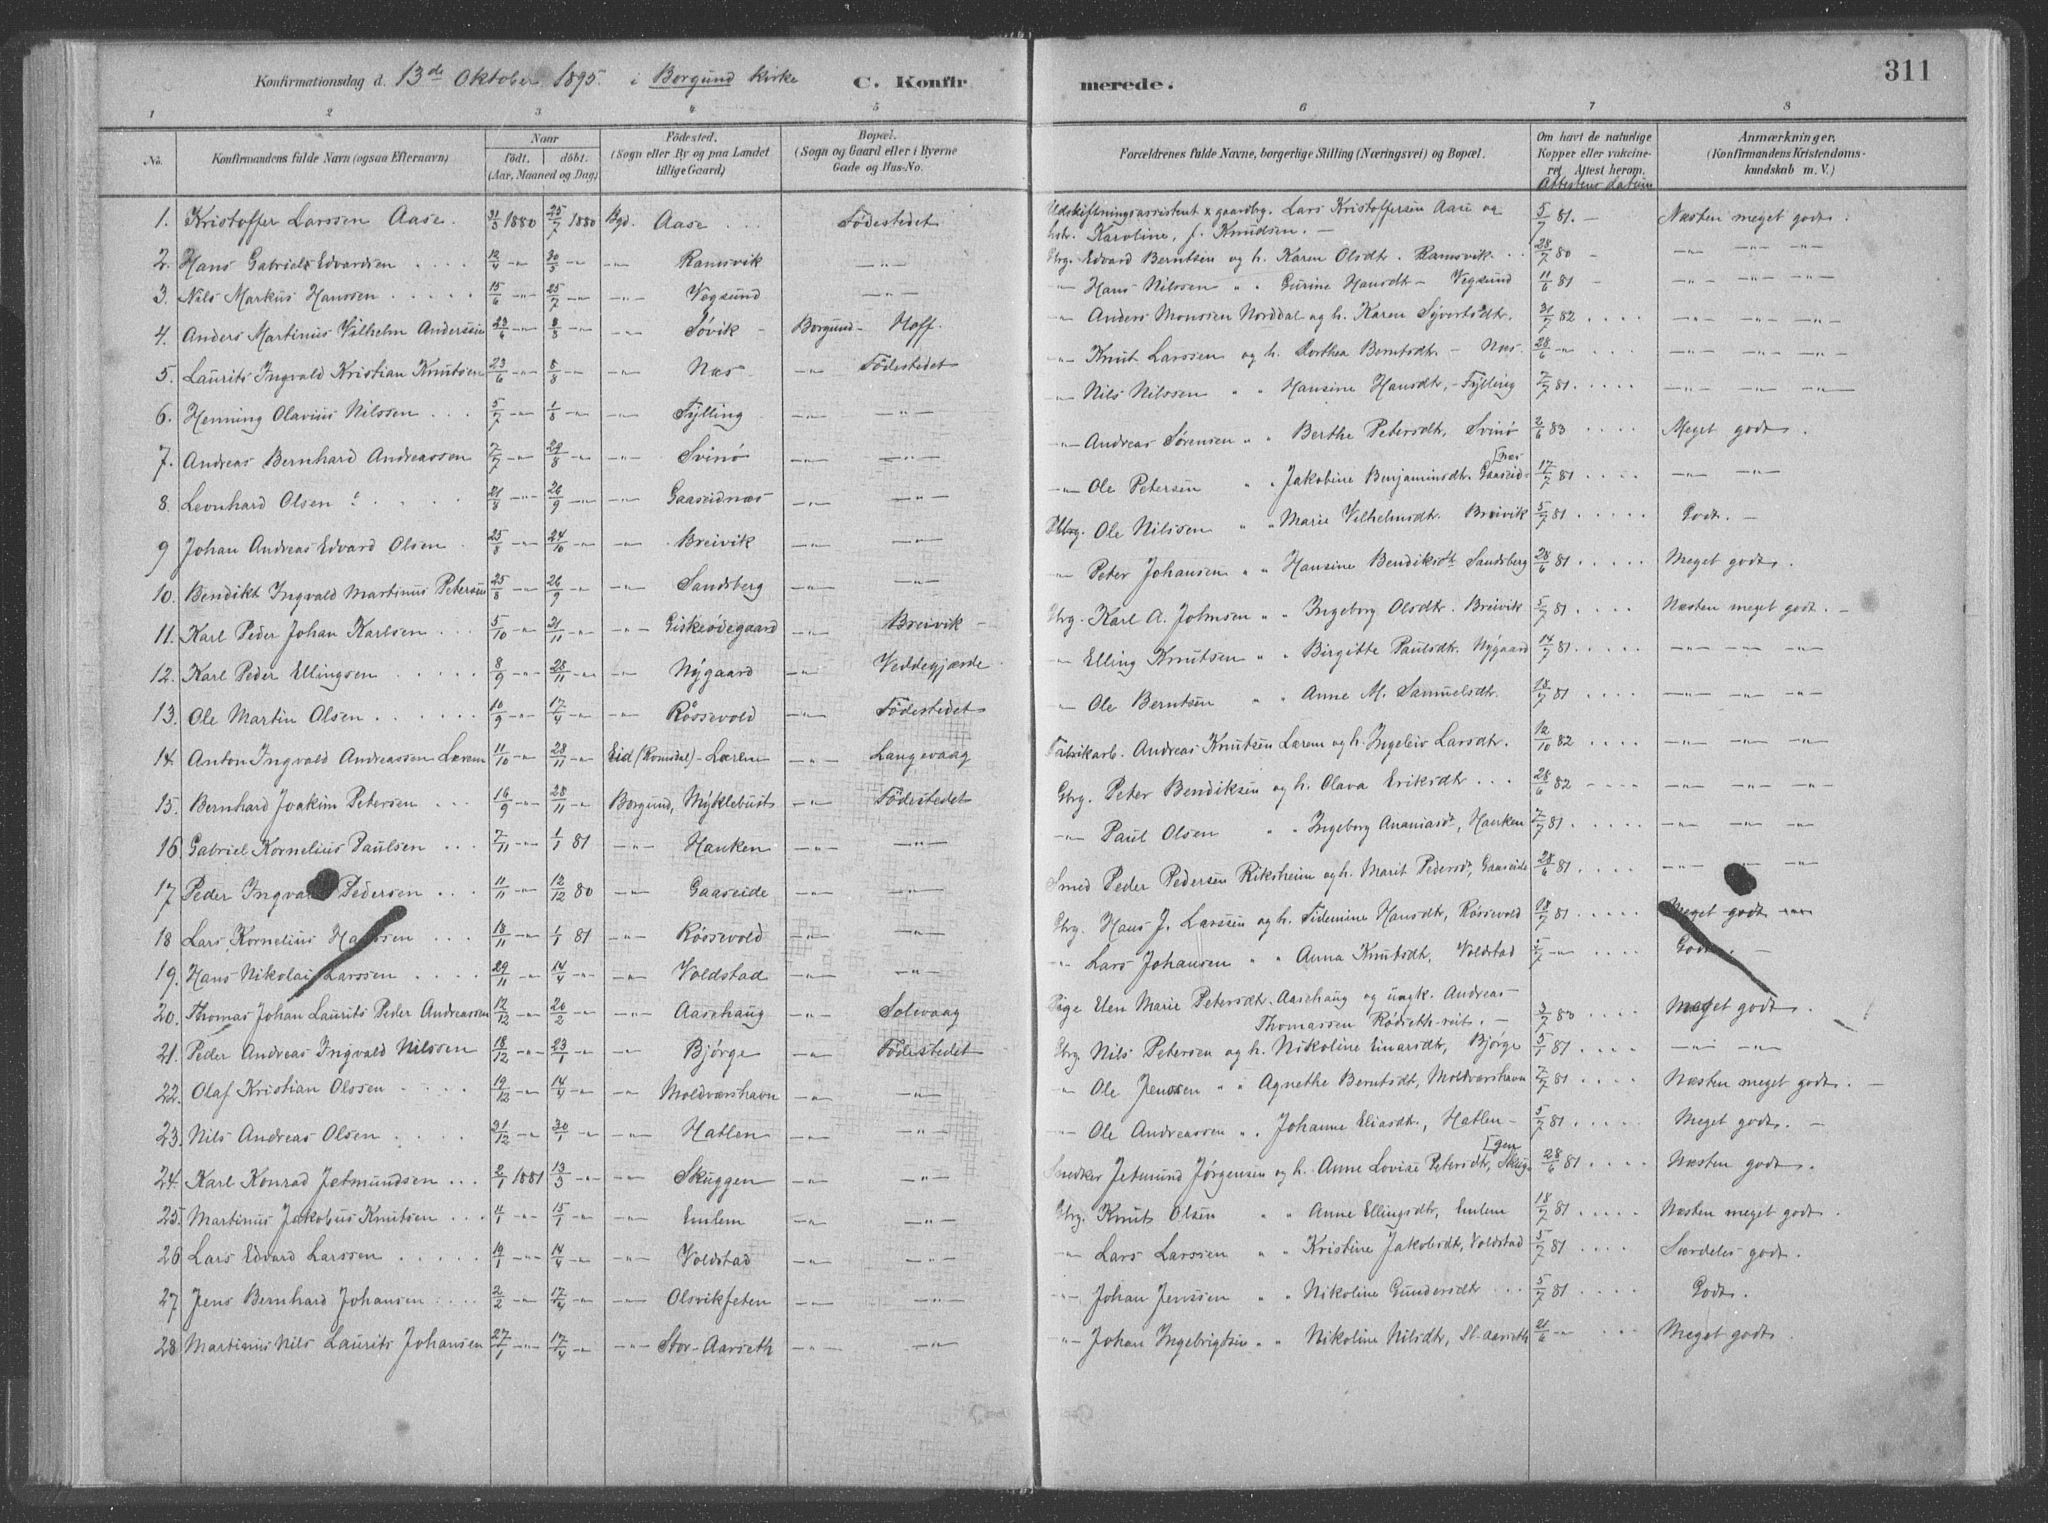 311
Konfirmationsdag d. 13de Oktober 1895 i Borgund Kirke C. Konfirmerede.
1 2 3 4 5 6 7 8
No. Konfirmandens fulde Navn (ogsaa Efternavn) Naar født. døbt. (Aar, Maaned og Dag) Fødested. (Sogn eller By og paa Landet tillige Gaard) Bopæl. (Sogn og Gaard eller i Byerne Gade og Hus-No. Forældrenes fulde Navne, borgerlige Stilling (Næringsvei) og Bopæl. Om havt de naturlige Kopper eller vakcineret. Attest herom. Attestens datum Anmærkninger. (Konfirmandens Kristendomskundskab m. V.)
1. Kristoffer Larssen Aase. 31/3 1880 25/7 1880 Bgd. Aase Fødestedet Udskiftningsassistent & gaardbg. Lars Kristoffersen Aase og hstr. Karoline, f. Knudsen. 5/7 81. Næsten meget godt.
2. Hans Gabriel Edvardsen 12/4 -"- 30/5 -"- -"- Ramsvik -"- Gbrg. Edvard Berntsen og h. Karen Olsdt. Ramsvik 28/7 80 -"- -"- -"-
3. Nils Markus Hanssen 15/6 -"- 25/7 -"- -"- Vegsund -"- -"- Hans Nilssen " " Gurine Hansdt - Vegsund 11/6 81 -"- -"- -"-
4. Anders Martinus Vilhelm Anderssen 23/6 -"- 8/8 -"- -"- Søvik Borgund Hoff. -"- Anders Monssen Norddal og h. Karen Syvertsdtr. 31/7 82 -"- -"- -"-
5. Laurits Ingvald Kristian Knutsen 23/6 -"- 8/8 -"- -"- Næs -"- Fødestedet -"- Knut Larssen og h. Dorthea Berntsdt. - Næs. 28/6 -"- -"- -"- -"-
6. Henning Olavius Nilssen 5/7 -"- 1/8 -"- -"- Fylling -"- -"- -"- Nils Nilssen " " Hansine Hansdt, - Fylling 7/7 81. -"- -"- -"-
7. Andreas Bernhard Andreassen 7/7 -"- 29/8 -"- -"- Svinø -"- -"- -"- Andreas Sørensen " " Berthe Petersdt, Svinø 2/6 83 Meget godt.
8. Leonhard Olsen 21/8 -"- 26/9 -"- -"- Gaaseidnæs -"- -"- -"- Ole Petersen " " Jakobine Benjaminsdt. Gaaseid- [næs 17/7 81 -"- -"-
9 Johan Andreas Edvard Olsen 25/8 -"- 24/10 -"- -"- Breivik -"- -"- Gbrg. Ole Nilssen " " Marie Vilhelmsdt. Breivik 5/7 81 Godt.
10. Bendikt Ingvald Martinus Petersen 25/8 -"- 26/9 -"- -"- Sandsberg -"- -"- -"- Peter Johansen " " Hansine Bendiksdt. Sandsberg 28/6 81 Meget godt.
11. Karl Peder Johan Karlsen 5/10 -"- 21/11 -"- -"- Giskeødegaard -"- Breivik Gbrg. Karl A. Johnsen " " Ingeborg Olsdt. Breivik 5/7 81. Næsten meget godt.
12. Karl Peder Ellingsen 8/9 -"- 28/11 -"- -"- Nygaard -"- Veddegjærde -"- Elling Knutsen " " Birgitte Paulsdt. Nygaard 14/7 81. -"- -"- -"-
13. Ole Martin Olsen 10/9 -"- 17/4 -"- -"- Røssevold -"- Fødestedet -"- Ole Berntsen " " Anne M. Samuelsdt. 18/7 81 -"- -"- -"-
14. Anton Ingvald Andreassen Lærem 11/10 -"- 28/11 -"- Eid (Romsdal) - Lærem -"- Langevaag Fabrikarb. Andreas Knutsen Lærem og h. Ingeleiv Larsdt. 12/10 82 -"- -"- -"-
15. Bernhard Joakim Petersen 16/9 -"- 28/11 -"- Borgund, Myklebust -"- Fødestedet Gbrg. Peter Bendiksen og h. Olava Eriksdt 28/6 82 -"- -"- -"-
16. Gabriel Kornelius Paulsen 7/11 -"- 1/1 81 -"- Hanken -"- -"- -"- Paul Olsen " " Ingeborg Ananiasdt, Hanken 7/7 81 -"- -"- -"-
17 Peder Ingvald Pedersen 11/11 -"- 12/12 80 -"- Gaaseide -"- -"- Smed Peder Pedersen Riksheim og h. Marit Pedersdt, Gaaseide 28/6 81. -"- -"- -"-
18 Lars Kornelius Hanssen 18/11 -"- 1/1 81 -"- Røssevold -"- -"- Gbrg. Hans J. Larssen og h. Hansdt, Røssevold 18/7 81. Meget godt
19. Hans Nikolai Larssen 29/11 -"- 14/4 -"- -"- Voldstad -"- -"- " Lars Johansen " " Anna Knutsdt, Voldstad 5/7 -"- Godt.
20. Thomas Johan Laurits Peder Andreassen 12/12 -"- 20/2 -"- -"- Aasehaug -"- Solevaag Pige Elen Marie Petersdt. Aasehaug og ungk. Andreas Thomassen Rødseth-reit. 3/7 83 Meget godt.
21. Peder Andreas Ingvald Nilssen 18/12 -"- 23/1 -"- -"- Bjørge -"- Fødestedet Gbrg. Nils Petersen og h. Nikoline Einarsdt, Bjørge 5/1 81 -"- -"-
22. Olaf Kristian Olssen 19/12 -"- 14/4 -"- -"- Moldværshavn -"- -"- " Ole Jenssen " " Agnethe Berntsdt, Moldværshavn 7/7 81 Næsten meget godt.
23. Nils Andreas Olsen 31/12 -"- 30/1 -"- -"- Hatlen -"- -"- -"- Ole Andreassen " " Johanne Eliasdt., Hatlen 5/7 81. Meget godt.
24. Karl Konrad Jetmundsen 2/1 1881 13/3 -"- -"- Skuggen -"- -"- Snedker Jetmund Jørgensen og h. Anne Lovise Petersdt, Skug- [gen 28/6 81 Næsten godt.
25. Martinus Jakobus Knutsen 4/1 -"- 15/1 -"- -"- Emlem -"- -"- Gbrg. Knut Olsen " " Anne Ellingsdt, Emlem 18/7 81. Næsten meget godt.
26 Lars Edvard Larssen 19/1 -"- 14/4 -"- -"- Voldstad -"- -"- -"- Lars Larssen " " Kristine Jakobsdt, Voldstad 5/7 81 Særdeles godt.
27 Jens Bernhard Johansen 2/2 -"- 17/4 -"- -"- Olsvikfeten -"- -"- -"- Johan Jenssen " " Nikoline Gundersdt 5/7 81 Godt.
28 Martinus Nils Laurits Johansen 27/1 -"- 17/4 -"- -"- Stor-Aarseth -"- -"- -"- Johan Ingebrigtsen " " Nikoline Nilsdt, St. Aarseth 21/6 -"- Meget godt.